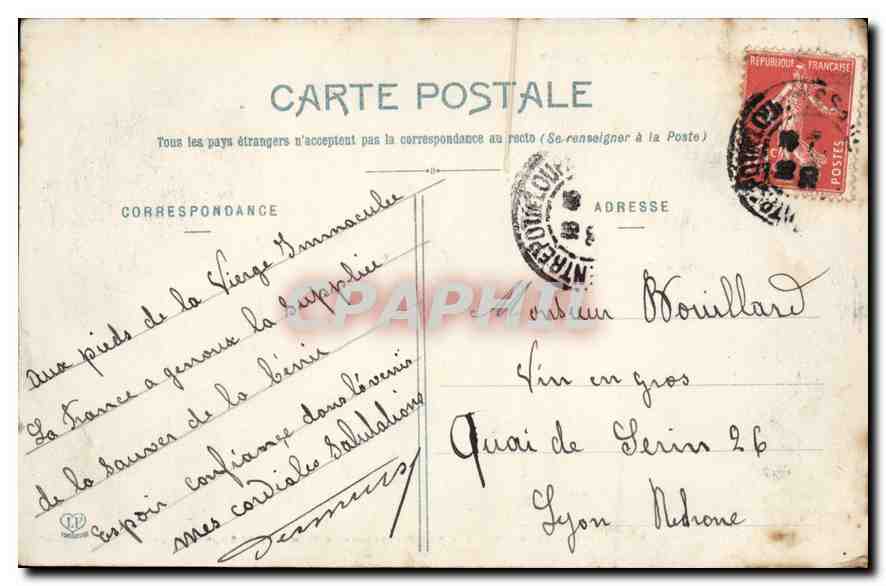 CARTE POSTALE
Tous les pays étrangers n'acceptent pas la correspondance au recto (Se renseigner à la Poste)
CORRESPONDANCE
Aux pieds de la Vierge Immaculée
La France a genoux la supplie
de la sauver de la bénir
Espoir confiance dans l'avenir
mes cordiales Salutations
ADRESSE
Monsieur Wouillard
Vin en gros
Quai de Serin 26
Lyon Rhône
REPUBLIQUE FRANÇAISE
POSTES
CPAPHIL